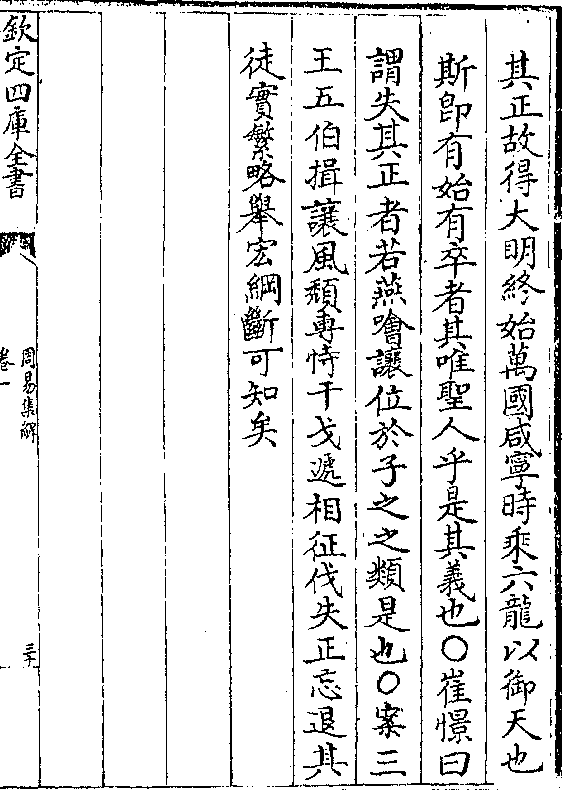 其正故得大明終始萬國咸寧時乘六龍以御天也
斯即有始有卒者其唯聖人乎是其義也○崔憬曰
謂失其正者若燕噲讓位於子之之類是也○案三
王五伯揖讓風頽專恃干戈遞相征伐失正忘退其
徒實繁略舉宏綱斷可知矣
欽定四庫全書
周易集解
卷一
三十